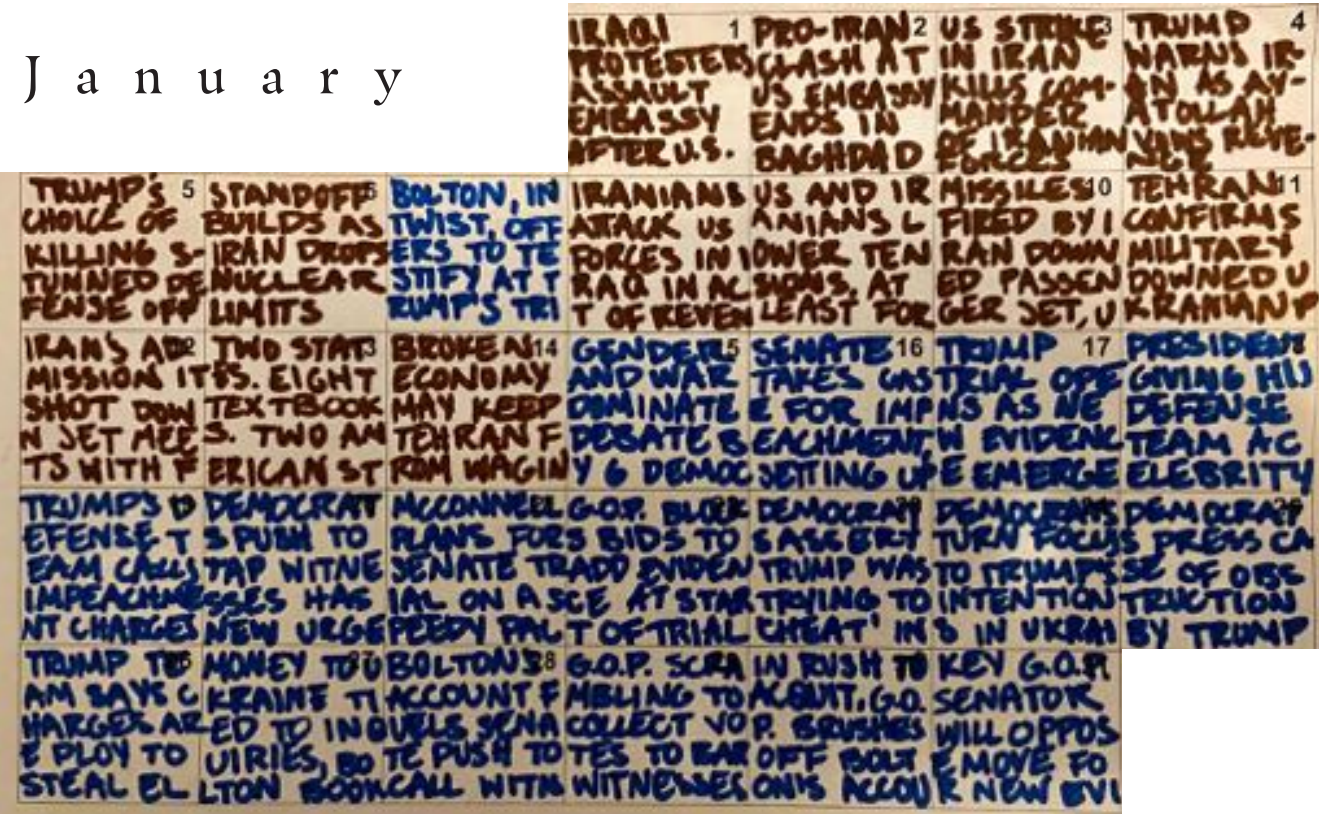 January
1
IRAQI
PROTESTERS
ASSAULT
EMBASSY
AFTER U.S.
2
PRO-IRAN
CLASH AT
US EMBASSY
ENDS IN
BAGHDAD
3
US STRIKE
IN IRAN
KILLS COM-
MANDER
OF IRANIAN
FORCES
4
TRUMP
WARNS IR-
AN AS AY-
ATOLLAH
VOWS REVE-
NGE
5
TRUMP'S
CHOICE OF
KILLING S-
TUNNED DE
FENSE OFF
6
STANDOFF
BUILDS AS
IRAN DROPS
NUCLEAR
LIMITS
BOLTON, IN
TWIST, OFF
ERS TO TE
STIFY AT T
RUMP'S TRI
IRANIANS
ATTACK US
FORCES IN I
RAQ IN AC
T OF REVEN
US AND IR
ANIANS L
OWER TEN
SIONS. AT
LEAST FOR
10
MISSILES
FIRED BY I
RAN DOWN
ED PASSEN
GER JET, U
11
TEHRAN
CONFIRMS
MILITARY
DOWNED U
KRANIAN P
IRAN'S AD
MISSION IT
SHOT DOW
N JET MEE
TS WITH F
TWO STAT
ES. EIGHT
TEXTBOOK
S. TWO AM
ERICAN ST
14
BROKEN
ECONOMY
MAY KEEP
TEHRAN F
ROM WAGIN
15
GENDER
AND WAR
DOMINATE
DEBATE B
Y 6 DEMOC
16
SENATE
TAKES CAS
E FOR IMP
EACHMENT,
SETTING UP
17
TRUMP
TRIAL OPE
NS AS NE
W EVIDENC
E EMERGE
18
PRESIDEN
GIVING HIS
DEFENSE
TEAM A C
ELEBRITY
TRUMP'S D
EFENSE T
EAM CALLS
IMPEACHME
NT CHARGES
DEMOCRAT
S PUSH TO
TAP WITNE
SSES HAS
NEW URGE
MCCONNELL
PLANS FOR
SENATE TR
IAL ON A S
PEEDY PAC
G.O.P. BLOCK
S BIDS TO
ADD EVIDEN
CE AT STAR
T OF TRIAL
DEMOCRAT
S ASSERT
TRUMP WAS
TRYING TO
'CHEAT' IN
DEMOCRATS
TURN FOCUS
TO TRUMP'S
INTENTION
S IN UKRAI
DEMOCRAT
S PRESS CA
SE OF OBS
TRUCTION
BY TRUMP
TRUMP TE
AM SAYS C
HARGES AR
E PLOY TO
STEAL EL
MONEY TO U
KRAINE TI
ED TO INQ
UIRIES, BO
LTON BOOK
28
BOLTON'S
ACCOUNT F
UELS SENA
TE PUSH TO
CALL WITN
G.O.P. SCRA
MBLING TO
COLLECT VO
TES TO BAR
WITNESSES
IN RUSH TO
ACQUIT, G.O.
P. BRUSHES
OFF BOLT
ON'S ACCOU
KEY G.O.P.
SENATOR
WILL OPPOS
E MOVE FO
R NEW EVI